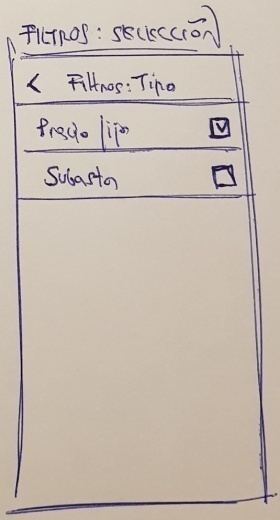 FILTROS: SELECCIÓN
< Filtros: Tipo
Precio fijo
Subasta